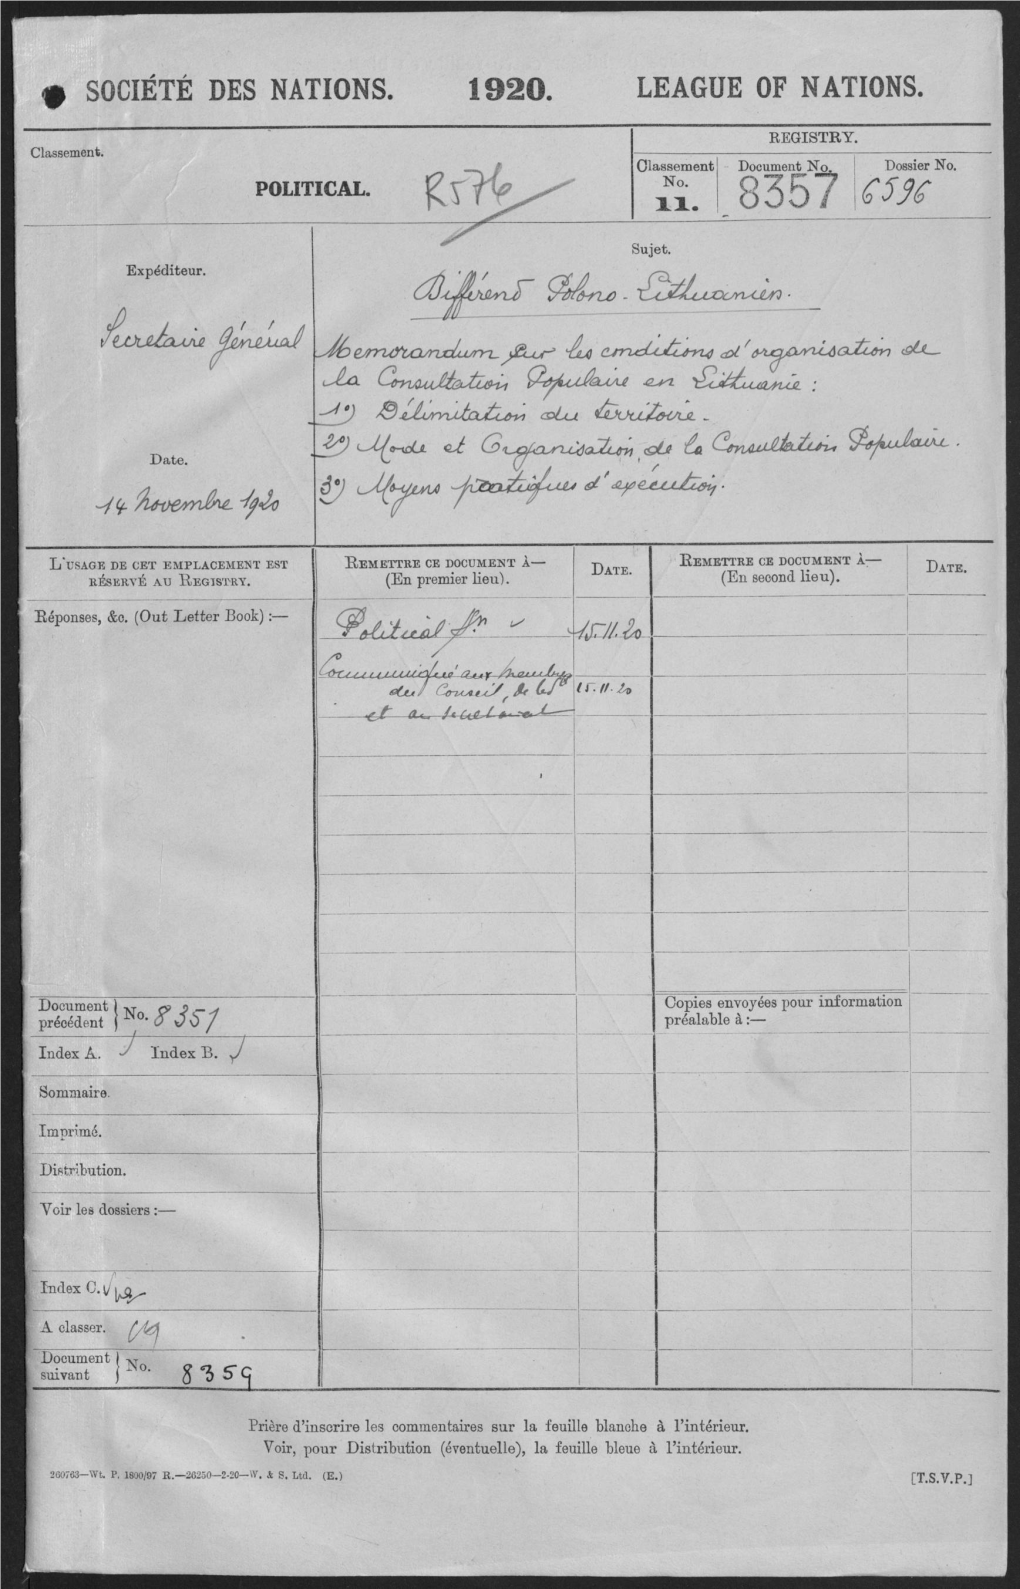 SOCIÉTÉ DES NATIONS. 1920. LEAGUE OF NATIONS.
Classement.
POLITICAL.
R576
REGISTRY.
Classement No. 11.
Document No. 8357
Dossier No. 6596
Expéditeur.
Secretaire Général
Date.
14 Novembre 1920
Sujet.
Différend Polono-Lithuanien.
Memorandum sur les conditions d'organisation de
la Consultation Populaire en Lithuanie :
1º) Délimitation du territoire.
2º) Mode et Organisation de la Consultation Populaire.
3º) Moyens pratiques d'exécution.
L'USAGE DE CET EMPLACEMENT EST
RÉSERVÉ AU REGISTRY.
Réponses, &c. (Out Letter Book) :—
REMETTRE CE DOCUMENT À—
(En premier lieu).
DATE.
Political Sn 15.11.20
Communiqué aux membres
du Conseil, 15.11.20
et au secrétariat
REMETTRE CE DOCUMENT À—
(En second lieu).
DATE.
Document précédent } No. 8351
Index A. ✓ Index B. ✓
Sommaire.
Imprimé.
Distribution.
Voir les dossiers :—
Index C. ✓
A classer.
Document suivant } No. 8359
Copies envoyées pour information
préalable à :—
Prière d'inscrire les commentaires sur la feuille blanche à l'intérieur.
Voir, pour Distribution (éventuelle), la feuille bleue à l'intérieur.
260763—Wt. P. 1800/97 R.—26250—2-20—W. & S. Ltd. (E.)
[T.S.V.P.]